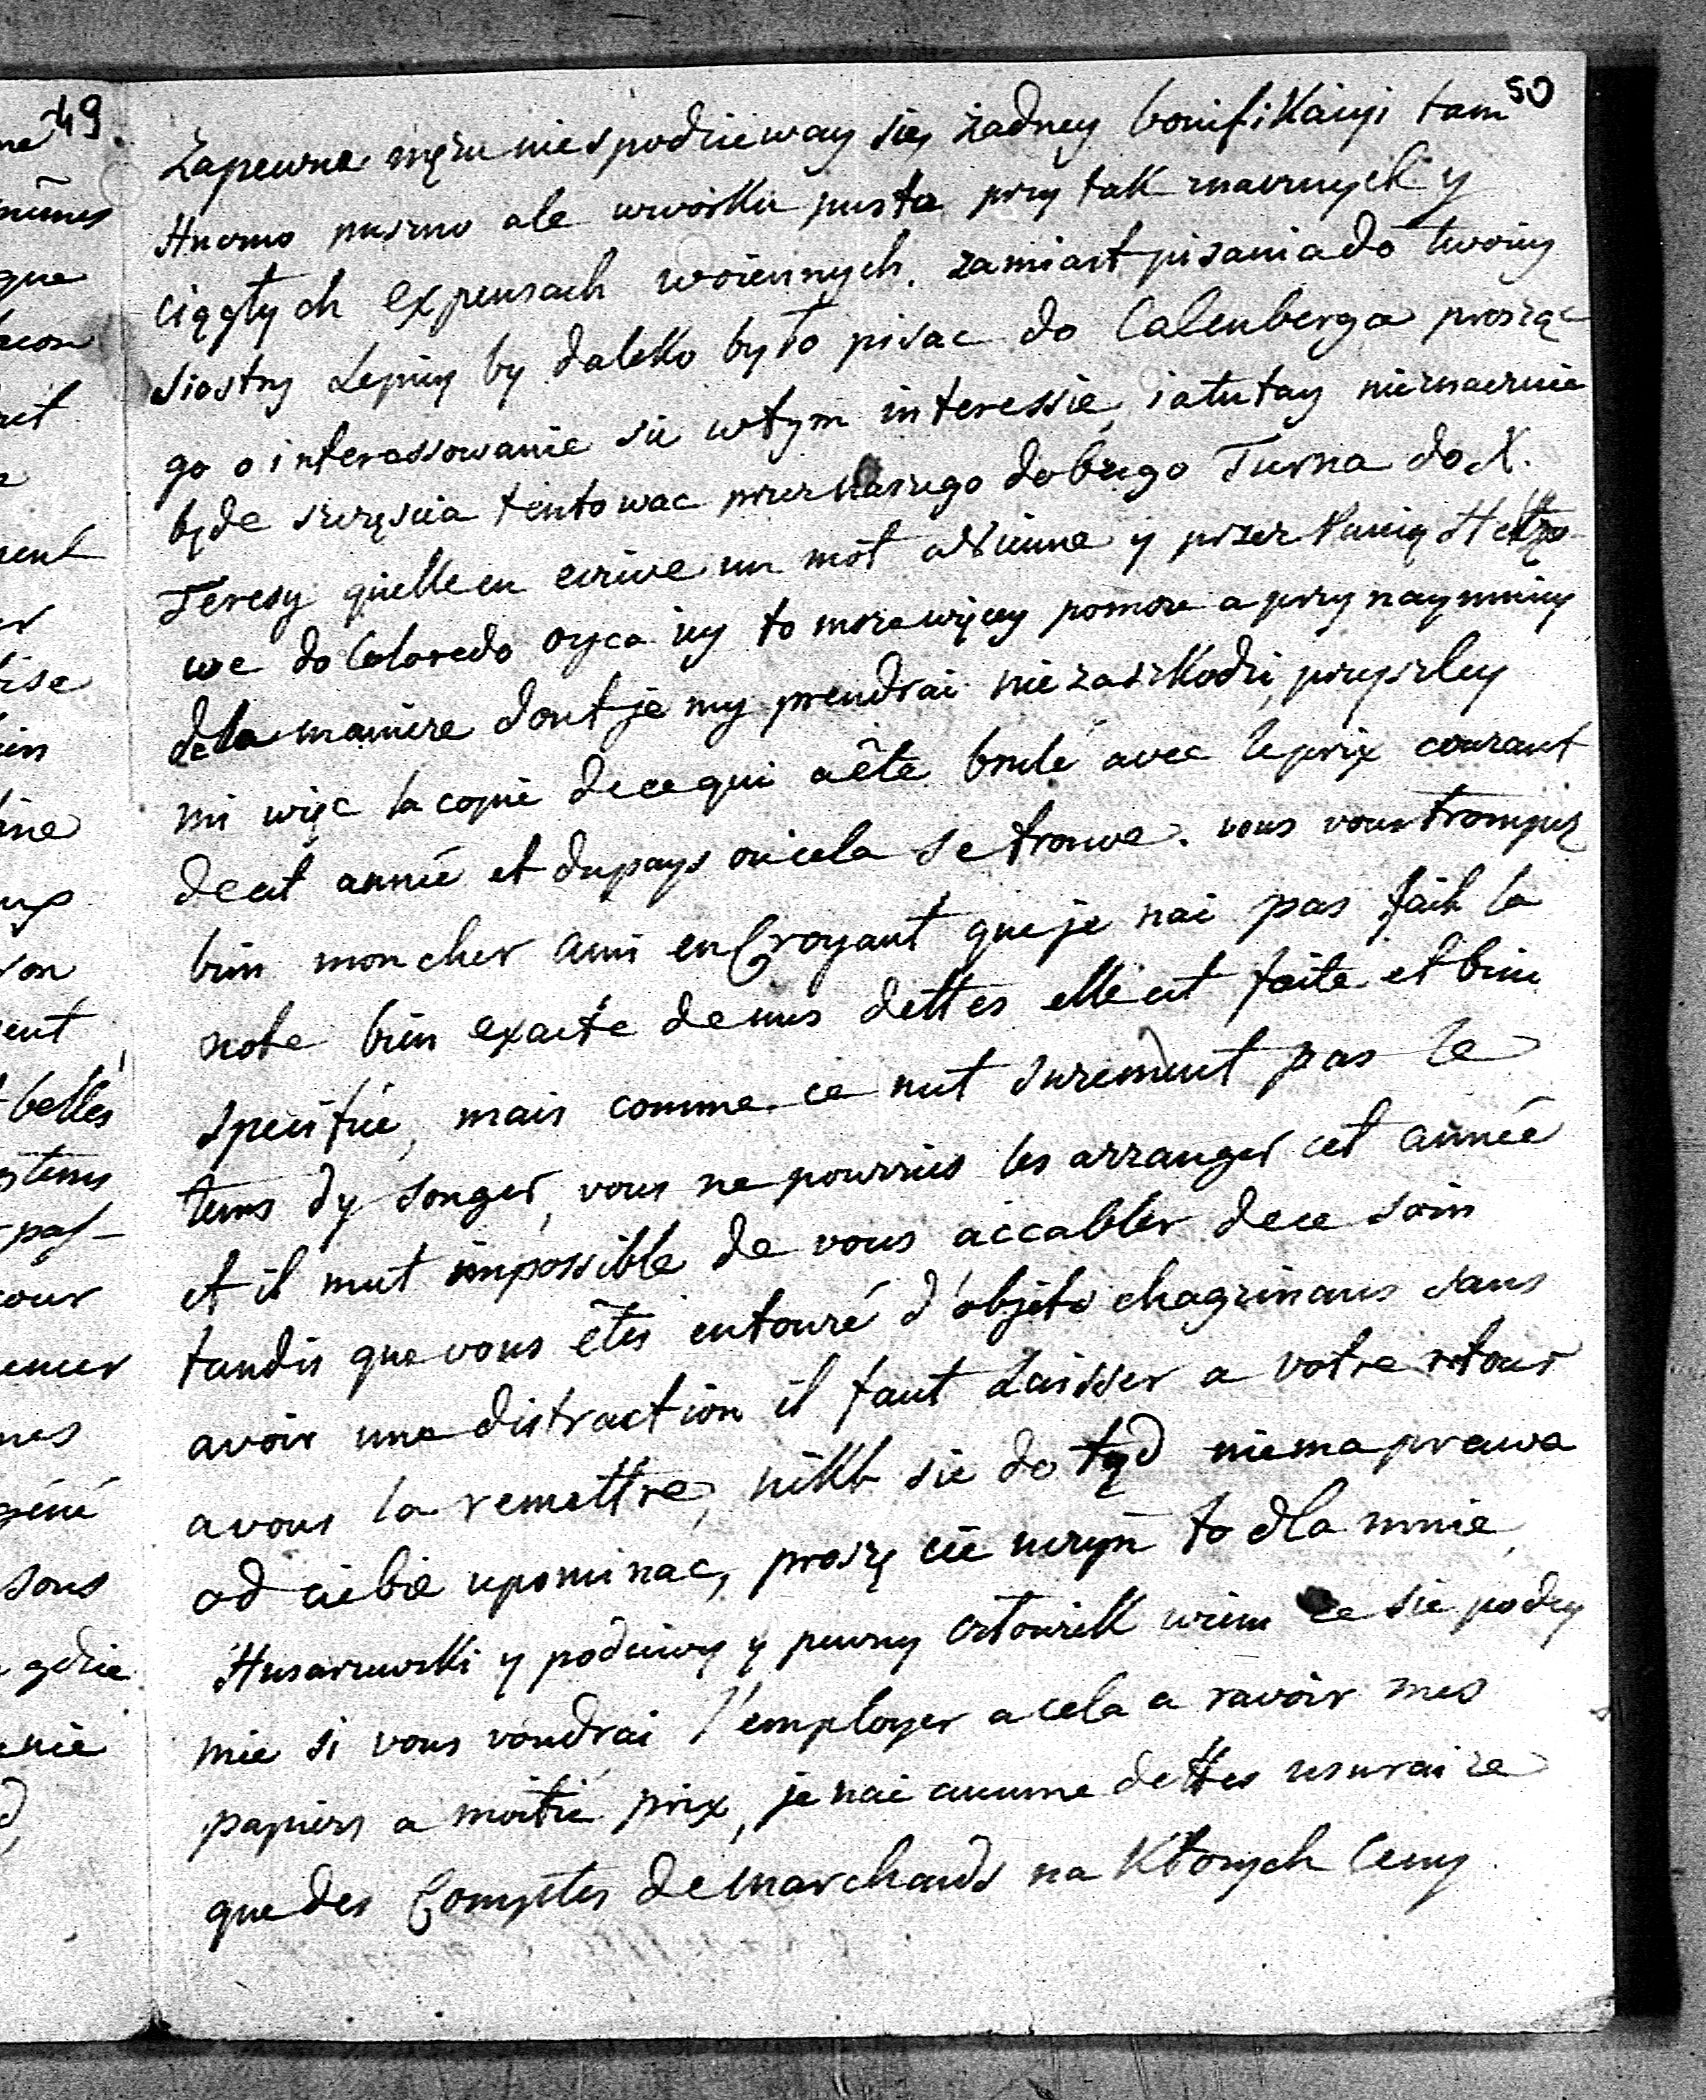 49.
50
Zapewne mężu niespodzieway się żadney bonifikacyi tam
Huczno puszno ale wworku pusto przy tak znacznych y
ciągłych expensach woiennych. zamiast pisania do twoiey
siostry Lepiey by daleko było pisac do Calenberga prosząc
go o interessowanie sie wtym interessie, ia tutay nieznacznie
będe szczęscia tentowac przez naszego dobrego Turna do X.
Teresy quelle en ecrive un mot a Vienne y przez Panią
we do Coloredo oyca iey to może więcey pomoze a przy naymniey
dela maniere dont je my prendrai nie zaszkodzi, przyszley
mi więc la copie de ce qui a êté brulé avec le prix courant
de cet année et du pays ou cela se trouve. vous vous trompiez
bien mon cher ami en Croyant que je nai pas fait la
note bien exacte de mes dettes elle est faite et bien
specifiée, mais comme ce nest surement pas le
tems dy songer, vous ne pourries les arranger cet année
et il mest impossible de vous accabler de ce soin
tandis que vous êtes entouré d'objets chagrinans sans
avoir une distraction il faut Laisser a votre retour
a vous la remettre, nikt sie do tąd niema prawa
od ciebie upominac, proszę cie uczyń to dla mnie,
Husarzewski y podciwy y pewny człowiek wiem ze sie podey
mie si vous voudrai l'employer a cela a ravoir mes
papiers a moitié prix, je nai aucune dettes usuraire
que des Comptes de marchands na Ktorych Ceny